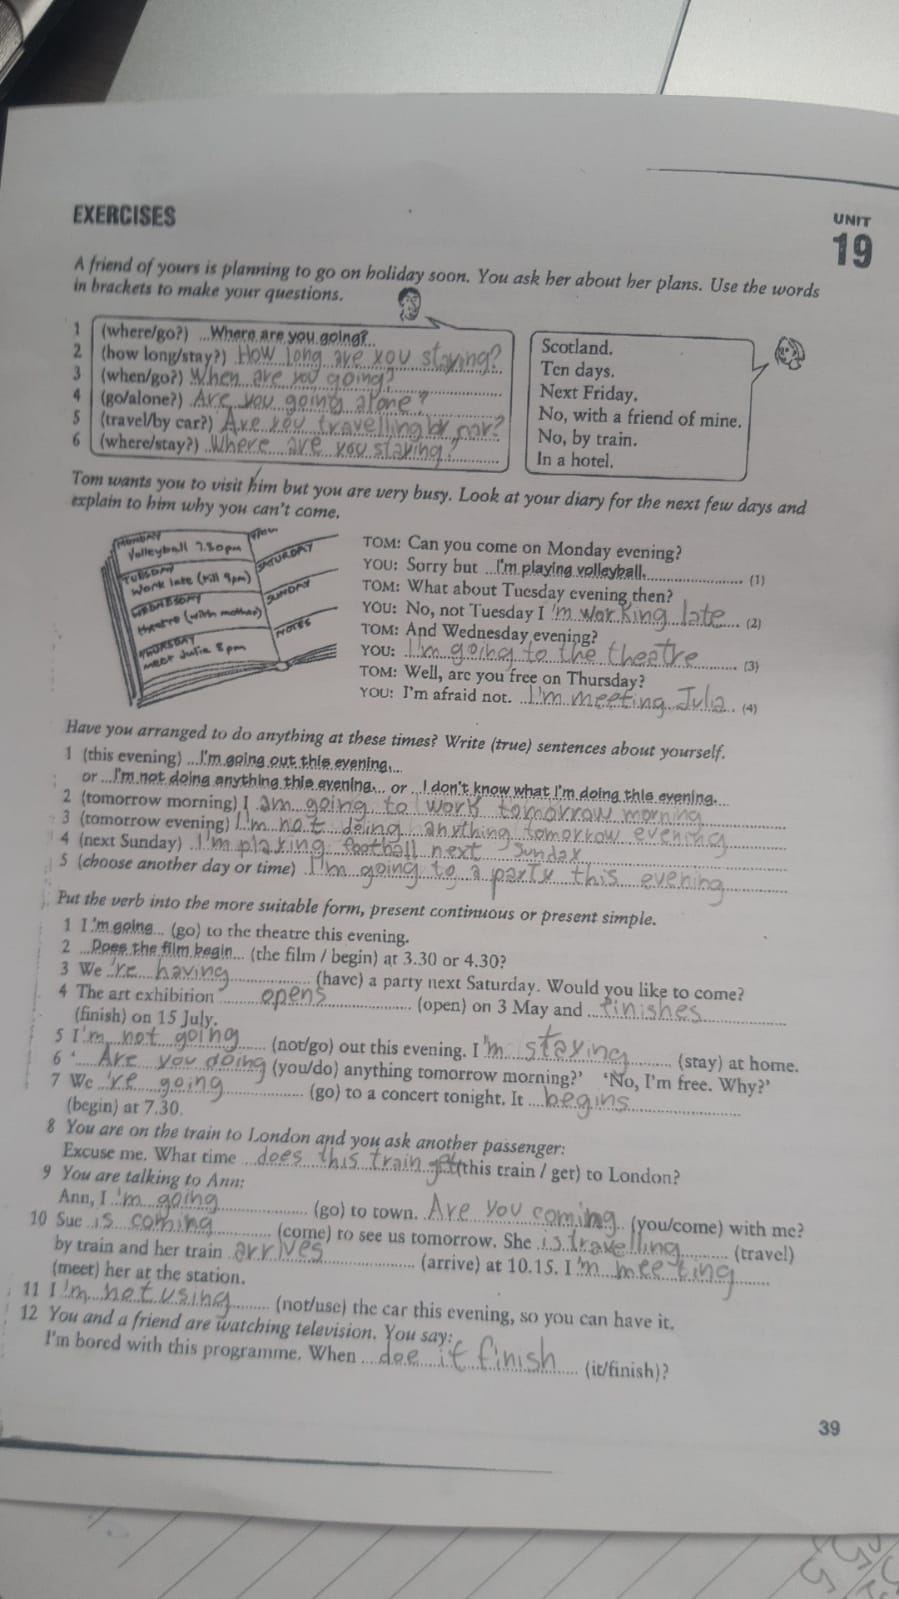 EXERCISES
UNIT
19
A friend of yours is planning to go on holiday soon. You ask her about her plans. Use the words
in brackets to make your questions.
1 (where/go?) ...Where are you going?..
2 (how long/stay?) How long are you staying?
3 (when/go?) When are you going?
4 (go/alone?) Are you going alone?
5 (travel/by car?) Are you travelling by car?
6 (where/stay?) Where are you staying?
Scotland.
Ten days.
Next Friday.
No, with a friend of mine.
No, by train.
In a hotel.
Tom wants you to visit him but you are very busy. Look at your diary for the next few days and
explain to him why you can't come.
MONDAY
Volleyball 7.30pm
TUESDAY
Work late (till 9pm)
WEDNESDAY
theatre (with mother)
THURSDAY
meet Julia 8pm
SATURDAY
SUNDAY
NOTES
TOM: Can you come on Monday evening?
YOU: Sorry but ...I'm playing volleyball. (1)
TOM: What about Tuesday evening then?
YOU: No, not Tuesday I 'm working late (2)
TOM: And Wednesday evening?
YOU: I'm going to the theatre (3)
TOM: Well, are you free on Thursday?
YOU: I'm afraid not. I'm meeting Julia (4)
Have you arranged to do anything at these times? Write (true) sentences about yourself.
1 (this evening) ...I'm going out this evening....
or ...I'm not doing anything this evening... or ..I don't know what I'm doing this evening.
2 (tomorrow morning) I am going to work tomorrow morning
3 (tomorrow evening) I'm not doing anything tomorrow evening
4 (next Sunday) I'm playing football next Sunday
5 (choose another day or time) I'm going to a party this evening
Put the verb into the more suitable form, present continuous or present simple.
1 I 'm going... (go) to the theatre this evening.
2 ...Does the film begin... (the film / begin) at 3.30 or 4.30?
3 We 're having (have) a party next Saturday. Would you like to come?
4 The art exhibition opens (open) on 3 May and finishes
(finish) on 15 July.
5 I 'm not going (not/go) out this evening. I 'm staying (stay) at home.
6 ' Are you doing (you/do) anything tomorrow morning?' 'No, I'm free. Why?'
7 We 're going (go) to a concert tonight. It begins
(begin) at 7.30.
8 You are on the train to London and you ask another passenger:
Excuse me. What time does this train get (this train / get) to London?
9 You are talking to Ann:
Ann, I 'm going (go) to town. Are you coming (you/come) with me?
10 Sue is coming (come) to see us tomorrow. She is travelling (travel)
by train and her train arrives (arrive) at 10.15. I 'm meeting
(meet) her at the station.
11 I 'm not using (not/use) the car this evening, so you can have it.
12 You and a friend are watching television. You say:
I'm bored with this programme. When doe it finish (it/finish)?
39